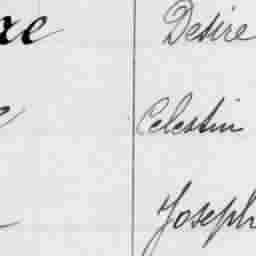 Desire
Celestin
Joseph